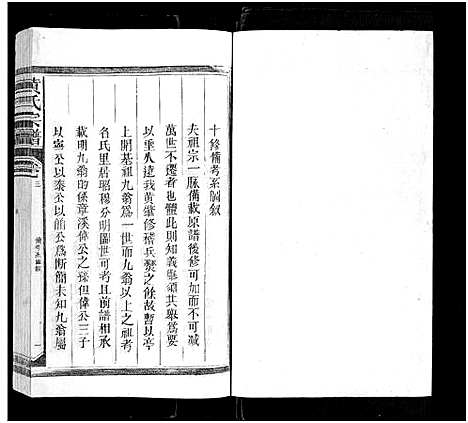 十修備考系圖敘
夫祖宗一脉備載原譜後修可加而不可減
萬世不遷者也體此則知義舉領其舉為要
以重人遠我黃雖修稽兵燹之餘故暫以亭
上開基祖九翁為一世而九翁以上之祖考
名氏里居昭穆分明圖世可考前譜相承
載明九翁的係章溪偉公之孫但偉公三子
以寧公以泰公以簡公為斷簡未知九翁屬
黃氏宗譜
卷三
備考系圖敘
一